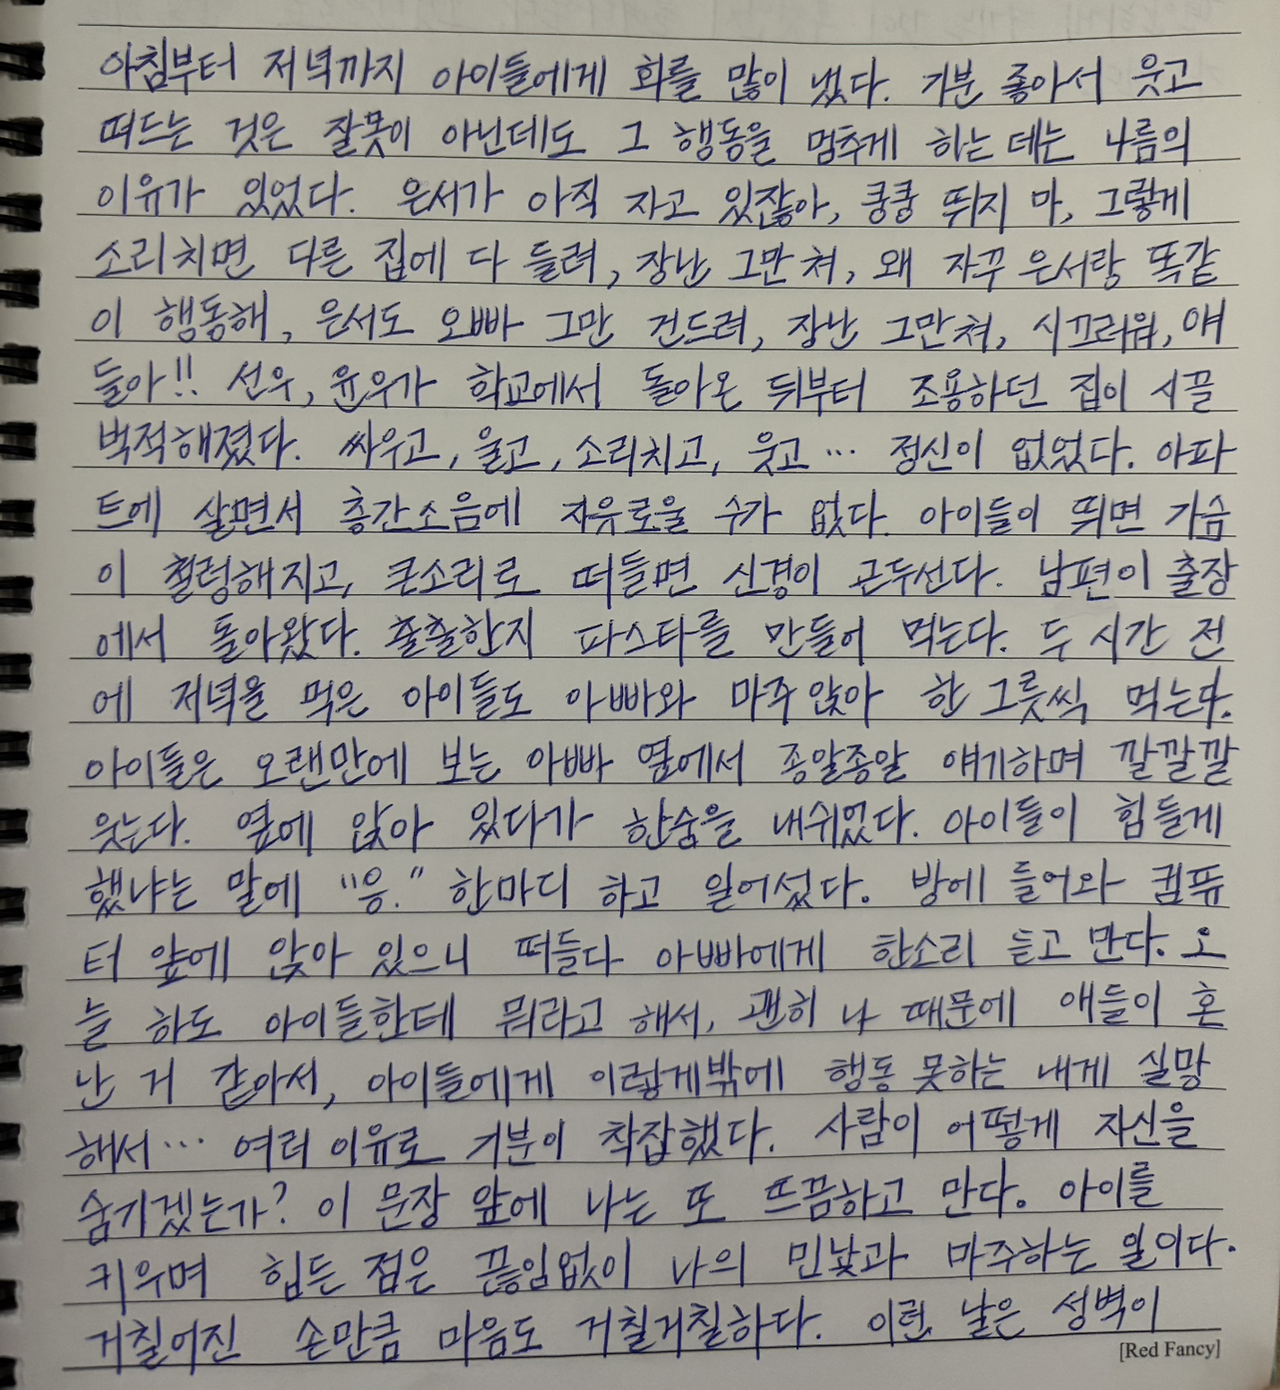 아침부터 저녁까지 아이들에게 화를 많이 냈다. 기분 좋아서 웃고
떠드는 것은 잘못이 아닌데도 그 행동을 멈추게 하는 데는 나름의
이유가 있었다. 은서가 아직 자고 있잖아, 쿵쿵 뛰지 마, 그렇게
소리치면 다른 집에 다 들려, 장난 그만 쳐, 왜 자꾸 은서랑 똑같
이 행동해, 은서도 오빠 그만 건드려, 장난 그만 쳐, 시끄러워, 얘
들아!! 선우, 윤우가 학교에서 돌아온 뒤부터 조용하던 집이 시끌
벅적해졌다. 싸우고, 울고, 소리치고, 웃고… 정신이 없었다. 아파
트에 살면서 층간소음에 자유로울 수가 없다. 아이들이 뛰면 가슴
이 철렁해지고, 큰소리로 떠들면 신경이 곤두선다. 남편이 출장
에서 돌아왔다. 출출한지 파스타를 만들어 먹는다. 두 시간 전
에 저녁을 먹은 아이들도 아빠와 마주 앉아 한 그릇씩 먹는다.
아이들은 오랜만에 보는 아빠 옆에서 종알종알 얘기하며 깔깔깔
웃는다. 옆에 앉아 있다가 한숨을 내쉬었다. 아이들이 힘들게
했냐는 말에 "응." 한마디 하고 일어섰다. 방에 들어와 컴퓨
터 앞에 앉아 있으니 떠들다 아빠에게 한소리 듣고 만다. 오
늘 하도 아이들한테 뭐라고 해서, 괜히 나 때문에 애들이 혼
난 거 같아서, 아이들에게 이렇게밖에 행동 못하는 내게 실망
해서… 여러 이유로 기분이 착잡했다. 사람이 어떻게 자신을
숨기겠는가? 이 문장 앞에 나는 또 뜨끔하고 만다. 아이를
키우며 힘든 점은 끊임없이 나의 민낯과 마주하는 일이다.
거칠어진 손만큼 마음도 거칠거칠하다. 이런 날은 성벽이
[Red Fancy]